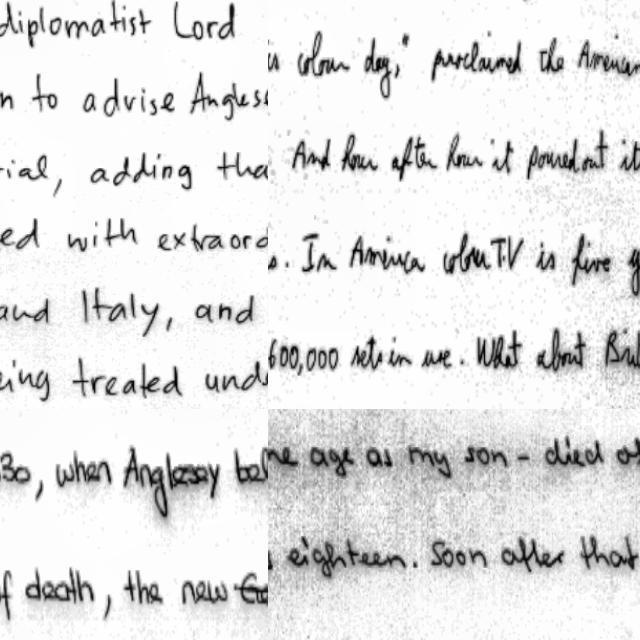 diplomatist Lord
to advise
adding
with extraord
and Italy, and
treated
30, when Anglesey
death, the new
colour day," proclaimed the American
And hour after hour it poured out it
. In America colour TV is five
600,000 sets in use. What about
age as my son - died of
eighteen. Soon after that